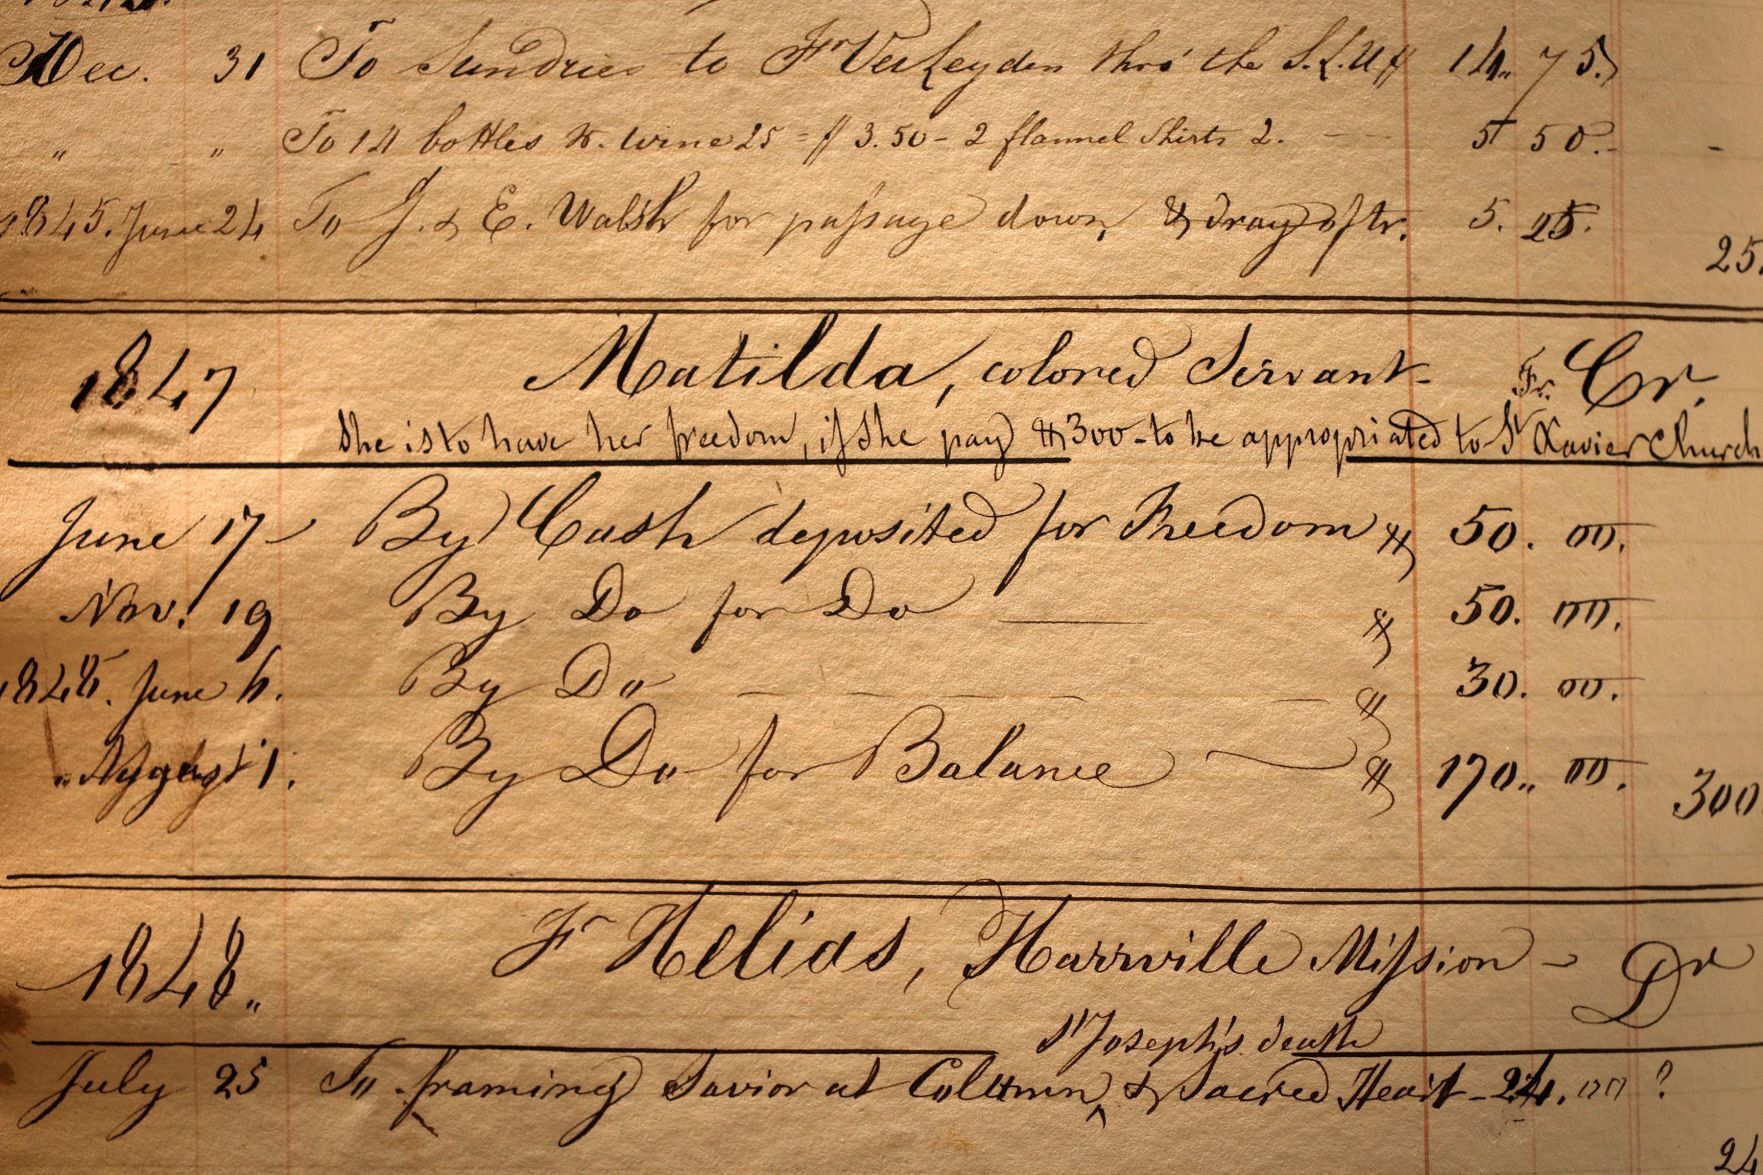 Dec. 31 To Sundries to Fr Verheyden thro' the S.L.U. 14.. 75.
" " To 14 bottles wine 25 = $ 3.50 - 2 flannel Shirts 2. 5 50.
1845. June 24 To J. & E. Walsh for passage down, & dray 5. 25.
25.
1847 Matilda, colored Servant - Fr. Cr.
She is to have her freedom, if she pay $300 - to be appropriated to St Xavier Church
June 17 - By Cash deposited for Freedom $ 50. 00.
Nov. 19 By Do for Do $ 50. 00.
1848. June 6. By Do $ 30. 00.
" August 1. By Do for Balance $ 170.. 00. 300
1848.. F Helias, Harrville Mission - Dr
St Joseph's death
July 25 To framing Savior at Column, & Sacred Heart - 24. 00 ?
24